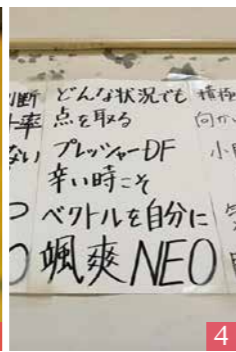 どんな状況でも
点を取る
プレッシャーDF
辛い時こそ
ベクトルを自分に
颯爽NEO
断
率
ない
積極
向か
小
4